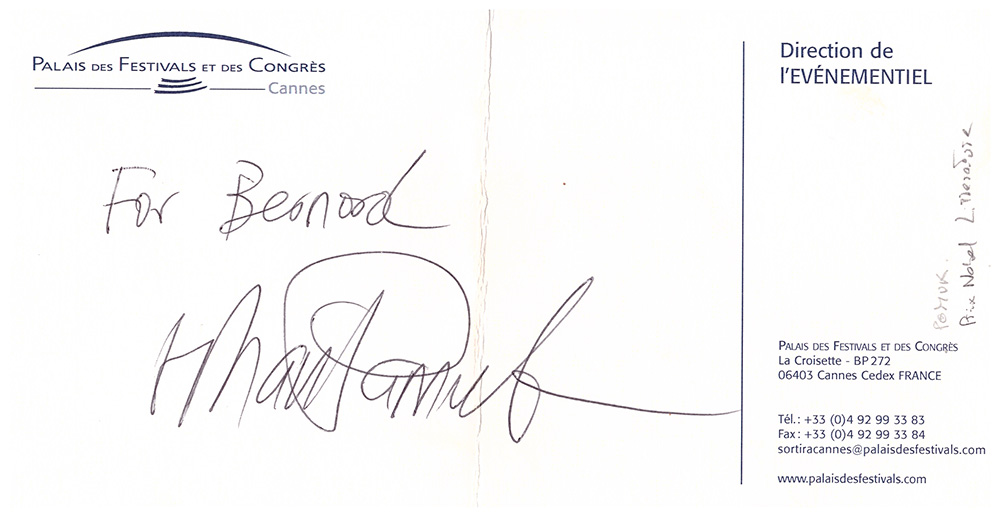 PALAIS DES FESTIVALS ET DES CONGRÈS
Cannes
For Bernard
Orhan Pamuk
Direction de
l'EVÉNEMENTIEL
PAMUK.
Prix Nobel Litterature
PALAIS DES FESTIVALS ET DES CONGRÈS
La Croisette - BP 272
06403 Cannes Cedex FRANCE
Tél.: +33 (0)4 92 99 33 83
Fax: +33 (0)4 92 99 33 84
sortiracannes@palaisdesfestivals.com
www.palaisdesfestivals.com